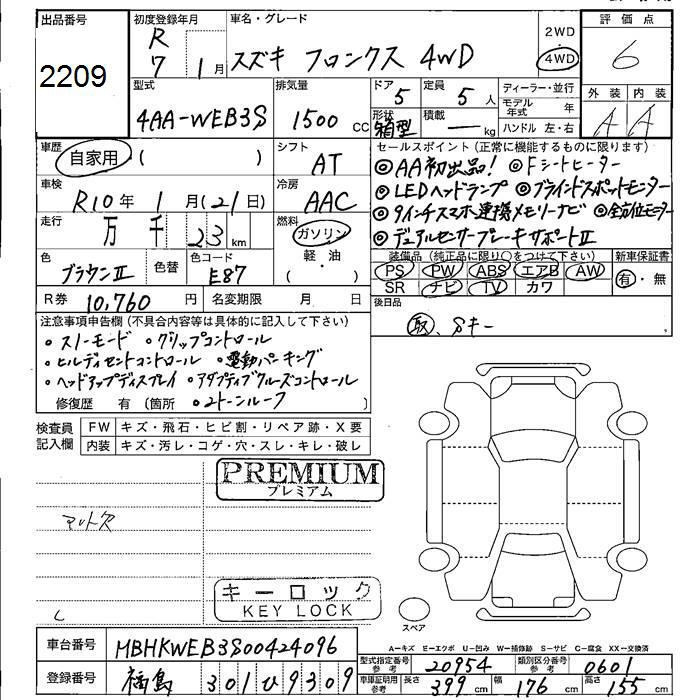 出品番号 初度登録年月 車名・グレード 評価点
2209 R 7 1月 スズキ フロンクス 4WD 2WD 4WD 6
型式 排気量 ドア 定員 ディーラー・並行 外装 内装
4AA-WEB3S 1500 cc 5 5 人 モデル年式 年
形状 積載 箱型 ー kg ハンドル 左・右 A A
車歴 自家用 ( ) シフト AT セールスポイント (正常に機能するものに限ります)
◎AA初出品! ◎Fシートヒーター
車検 R10年 1月(21日) 冷房 AAC ◎LEDヘッドランプ ◎ブラインドスポットモニター
走行 万 千 23 km 燃料 ガソリン ◎9インチスマホ連携メモリーナビ ◎全方位モニター
軽油 ( ・ ) ◎デュアルセンサーブレーキサポートⅡ
色 ブラウンⅡ 色替 色コード E87 装備品 (純正品に限り○をつけて下さい) 新車保証書
PS PW ABS エアB AW 有・無
SR ナビ TV カワ
R券 10,760 円 名変期限 月 日 後日品
取、Sキー
注意事項申告欄 (不具合内容等は具体的に記入して下さい)
・スノーモード ・グリップコントロール
・ヒルディセントコントロール ・電動パーキング
・ヘッドアップディスプレイ ・アダプティブクルーズコントロール
修復歴 有 (箇所 ・2トーンルーフ )
検査員記入欄 FW キズ・飛石・ヒビ割・リペア跡・X要
内装 キズ・汚レ・コゲ・穴・スレ・キレ・破レ
PREMIUM
プレミアム
マット欠
キーロック
KEY LOCK
スペア
A=キズ E=エクボ U=凹み W=補修跡 S=サビ C=腐食 XX=交換済
車台番号 MBHKWEB3S00424096 型式指定番号 参考 20954 類別区分番号 参考 0601
登録番号 福島 301 ひ 9309 車庫証明用 参考 長さ 399 cm 幅 176 cm 高さ 155 cm